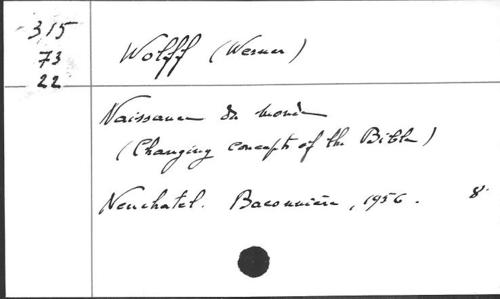 315
73
22
Wolff (Werner)
Naissance du monde
(Changing concepts of the Bible)
Neuchatel. Baconnière, 1956. 8°